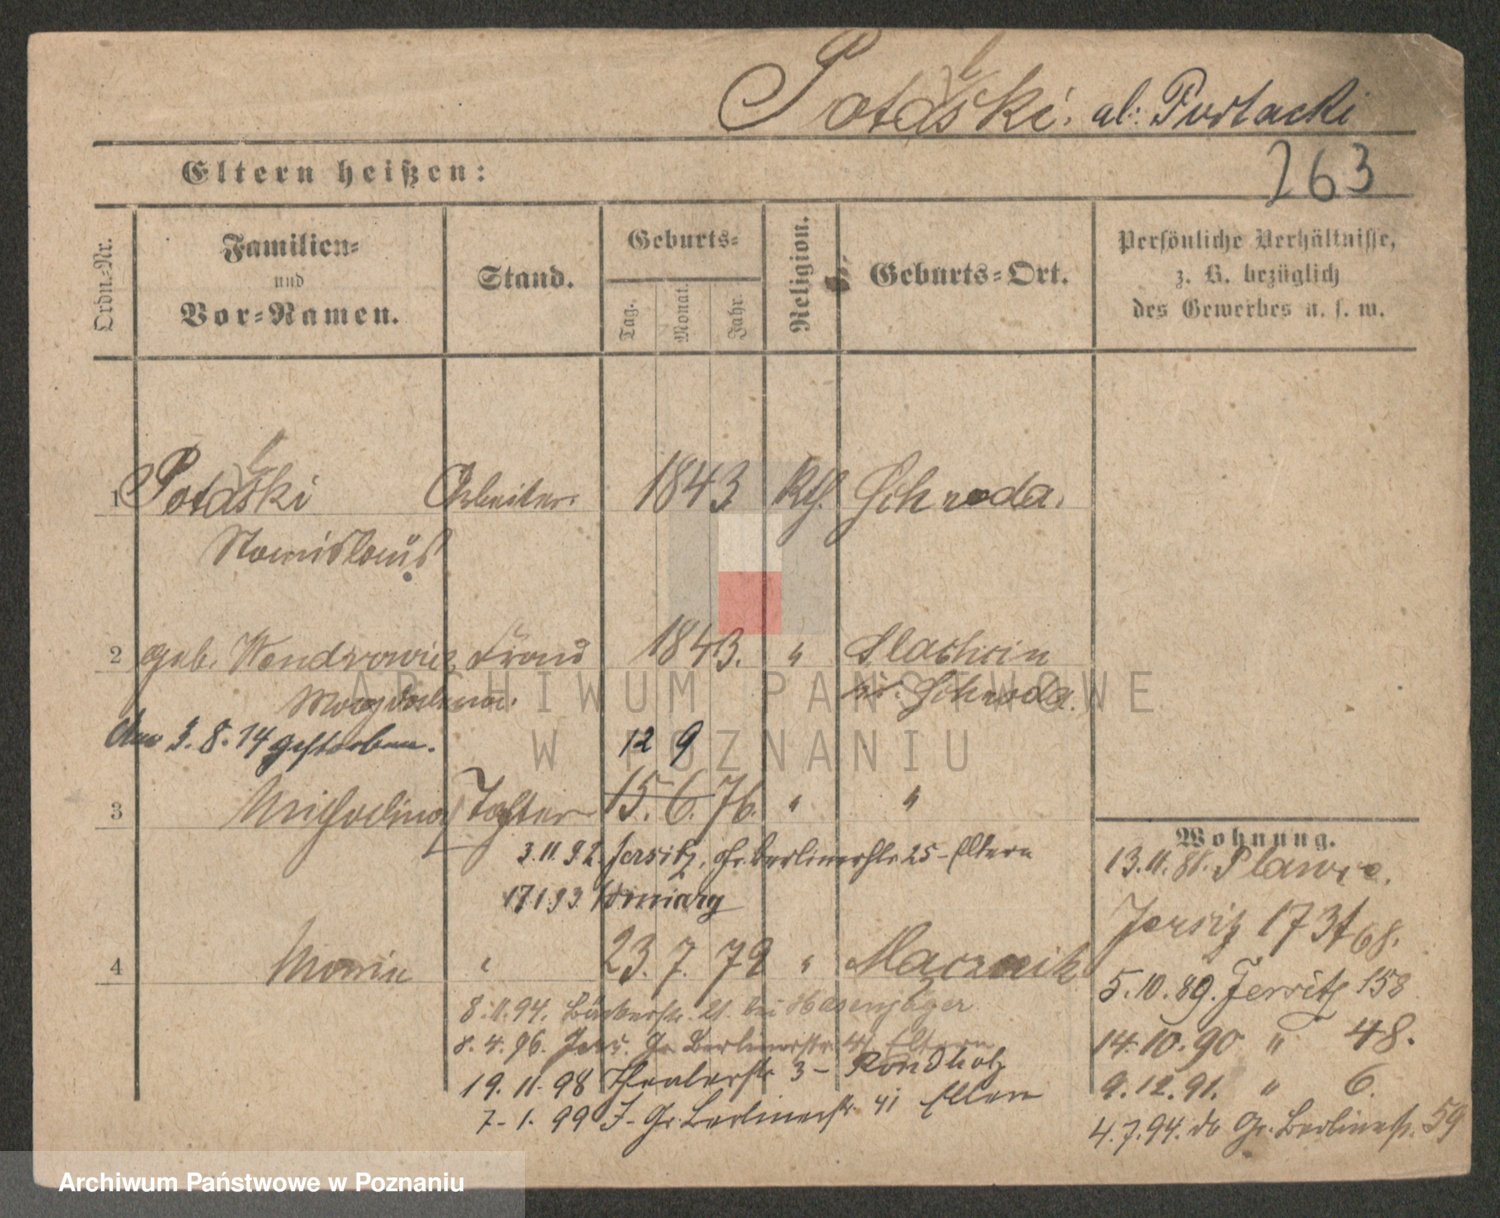 Potalski. al: Purtacki
Eltern heißen:
263
Ordn.-Nr.
Familien-
und
Vor-Namen.
Stand.
Geburts-
Tag.
Monat.
Jahr.
Religion.
Geburts-Ort.
Persönliche Verhältnisse,
z. B. bezüglich
des Gewerbes u. s. w.
1 Arbeiter 1843 Schroda.
Stanislaus
2 geb. Frau 1843. "
Magdalena. Kr. Schroda.
Am 3. 8. 14 gestorben.
12 9
3 Michalina Tochter 15. 6. 76. " "
Wohnung.
3.11.92. Jersitz, Gr. Berlinerstr. 25 - Eltern
13.11.81.
17.1.93
Jersitz 173
4 23. 7. 79 "
5.10.89. Jersitz 158
8.11.94. bei Hasenjäger
8.4.96. Gr. Berlinerstr. 41 Eltern
14.10.90 " 48.
19.11.98 Theaterstr 3 -
9.12.91. " 6.
7.1.99 J. Gr. Berlinerstr. 41 Eltern
4.7.94. do Gr. Berlinerstr. 59
ARCHIWUM PAŃSTWOWE
W POZNANIU
Archiwum Państwowe w Poznaniu